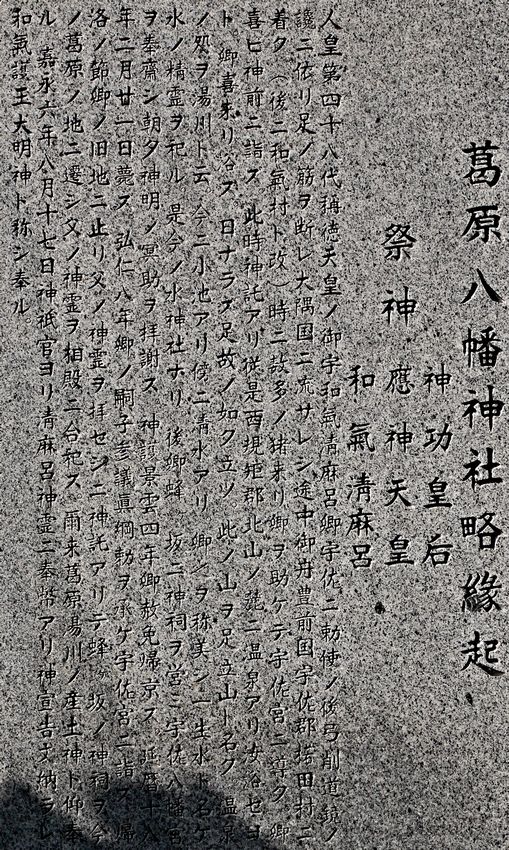 葛原八幡神社略縁起
祭神
神功皇后
應神天皇
和氣清麻呂
人皇第四十八代稱徳天皇ノ御宇和氣清麻呂卿宇佐ニ勅使ノ後弓削道鏡ノ
讒ニ依リ足ノ筋ヲ断レ大隅国ニ流サレシ途中御舟豊前国宇佐郡 田村ニ
着タ(後ニ和氣村ト改)時ニ数多ノ猪来リ卿ヲ助ケテ宇佐宮ニ導ク 卿
喜ビ神前ニ詣ス 此時神託アリ従是西規矩郡北山ノ麓ニ温泉アリ汝浴セヨ
ト 卿喜来リ浴ス 日ナラズ足故ノ如ク立ツ 此ノ山ヲ足立山ト名ク 温泉
ノ処ヲ湯川ト云 今ニ小池アリ傍ニ清水アリ 卿 ヲ称美シ一生水ト名ケ
水ノ精霊ヲ祀ル 是今ノ水神社ナリ 後卿蜂 坂ニ神祠ヲ営ミ宇佐八幡宮
ヲ奉齋シ朝夕神明ノ冥助ヲ拝謝ス 神護景雲四年卿赦免帰京ス 延暦十八
年二月廿一日薨ス 弘仁八年卿ノ嗣子参議眞綱勅ヲ承ケ宇佐宮ニ詣ズ 帰
洛ノ節卿ノ旧地ニ止リ父ノ神霊ヲ拝セシニ神託アリテ蜂 坂ノ神祠ヲ今
ノ葛原ノ地ニ遷シ父ノ神霊ヲ相殿ニ合祀ス 爾来葛原湯川ノ産土神ト仰奉
ル 嘉永六年八月十七日神祇官ヨリ清麻呂神霊ニ奉幣アリ神宣告文納ラレ
和氣護王大明神ト称シ奉ル